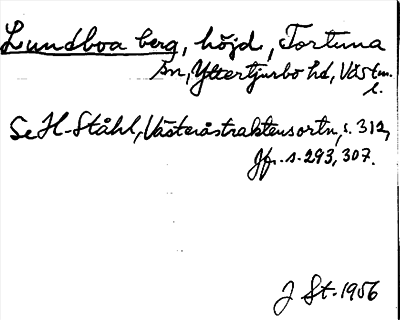 Lundboa berg, höjd, Tortuna
sn, Yttertjurbo hd, Västm.
l.
Se H-Ståhl, Västeråstraktens ortn, s. 312,
Jfr. s. 293, 307.
J St. 1956